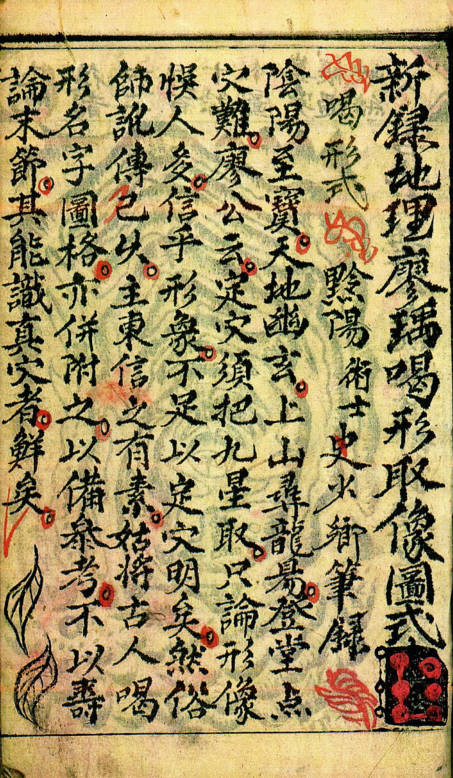 新録地理廖瑀喝形取像圖式
喝形式 黔陽術士史火鄉筆録
陰陽至寳天地幽玄上山尋龍易登堂点
穴難廖公云定穴須把九星取只論形像
悮人多信乎形象不足以定穴明矣然俗
師訛傳已久主東信之有素姑將古人喝
形名字圖格亦併附之以備叅考不以壽
論末節其能識真穴者鮮矣